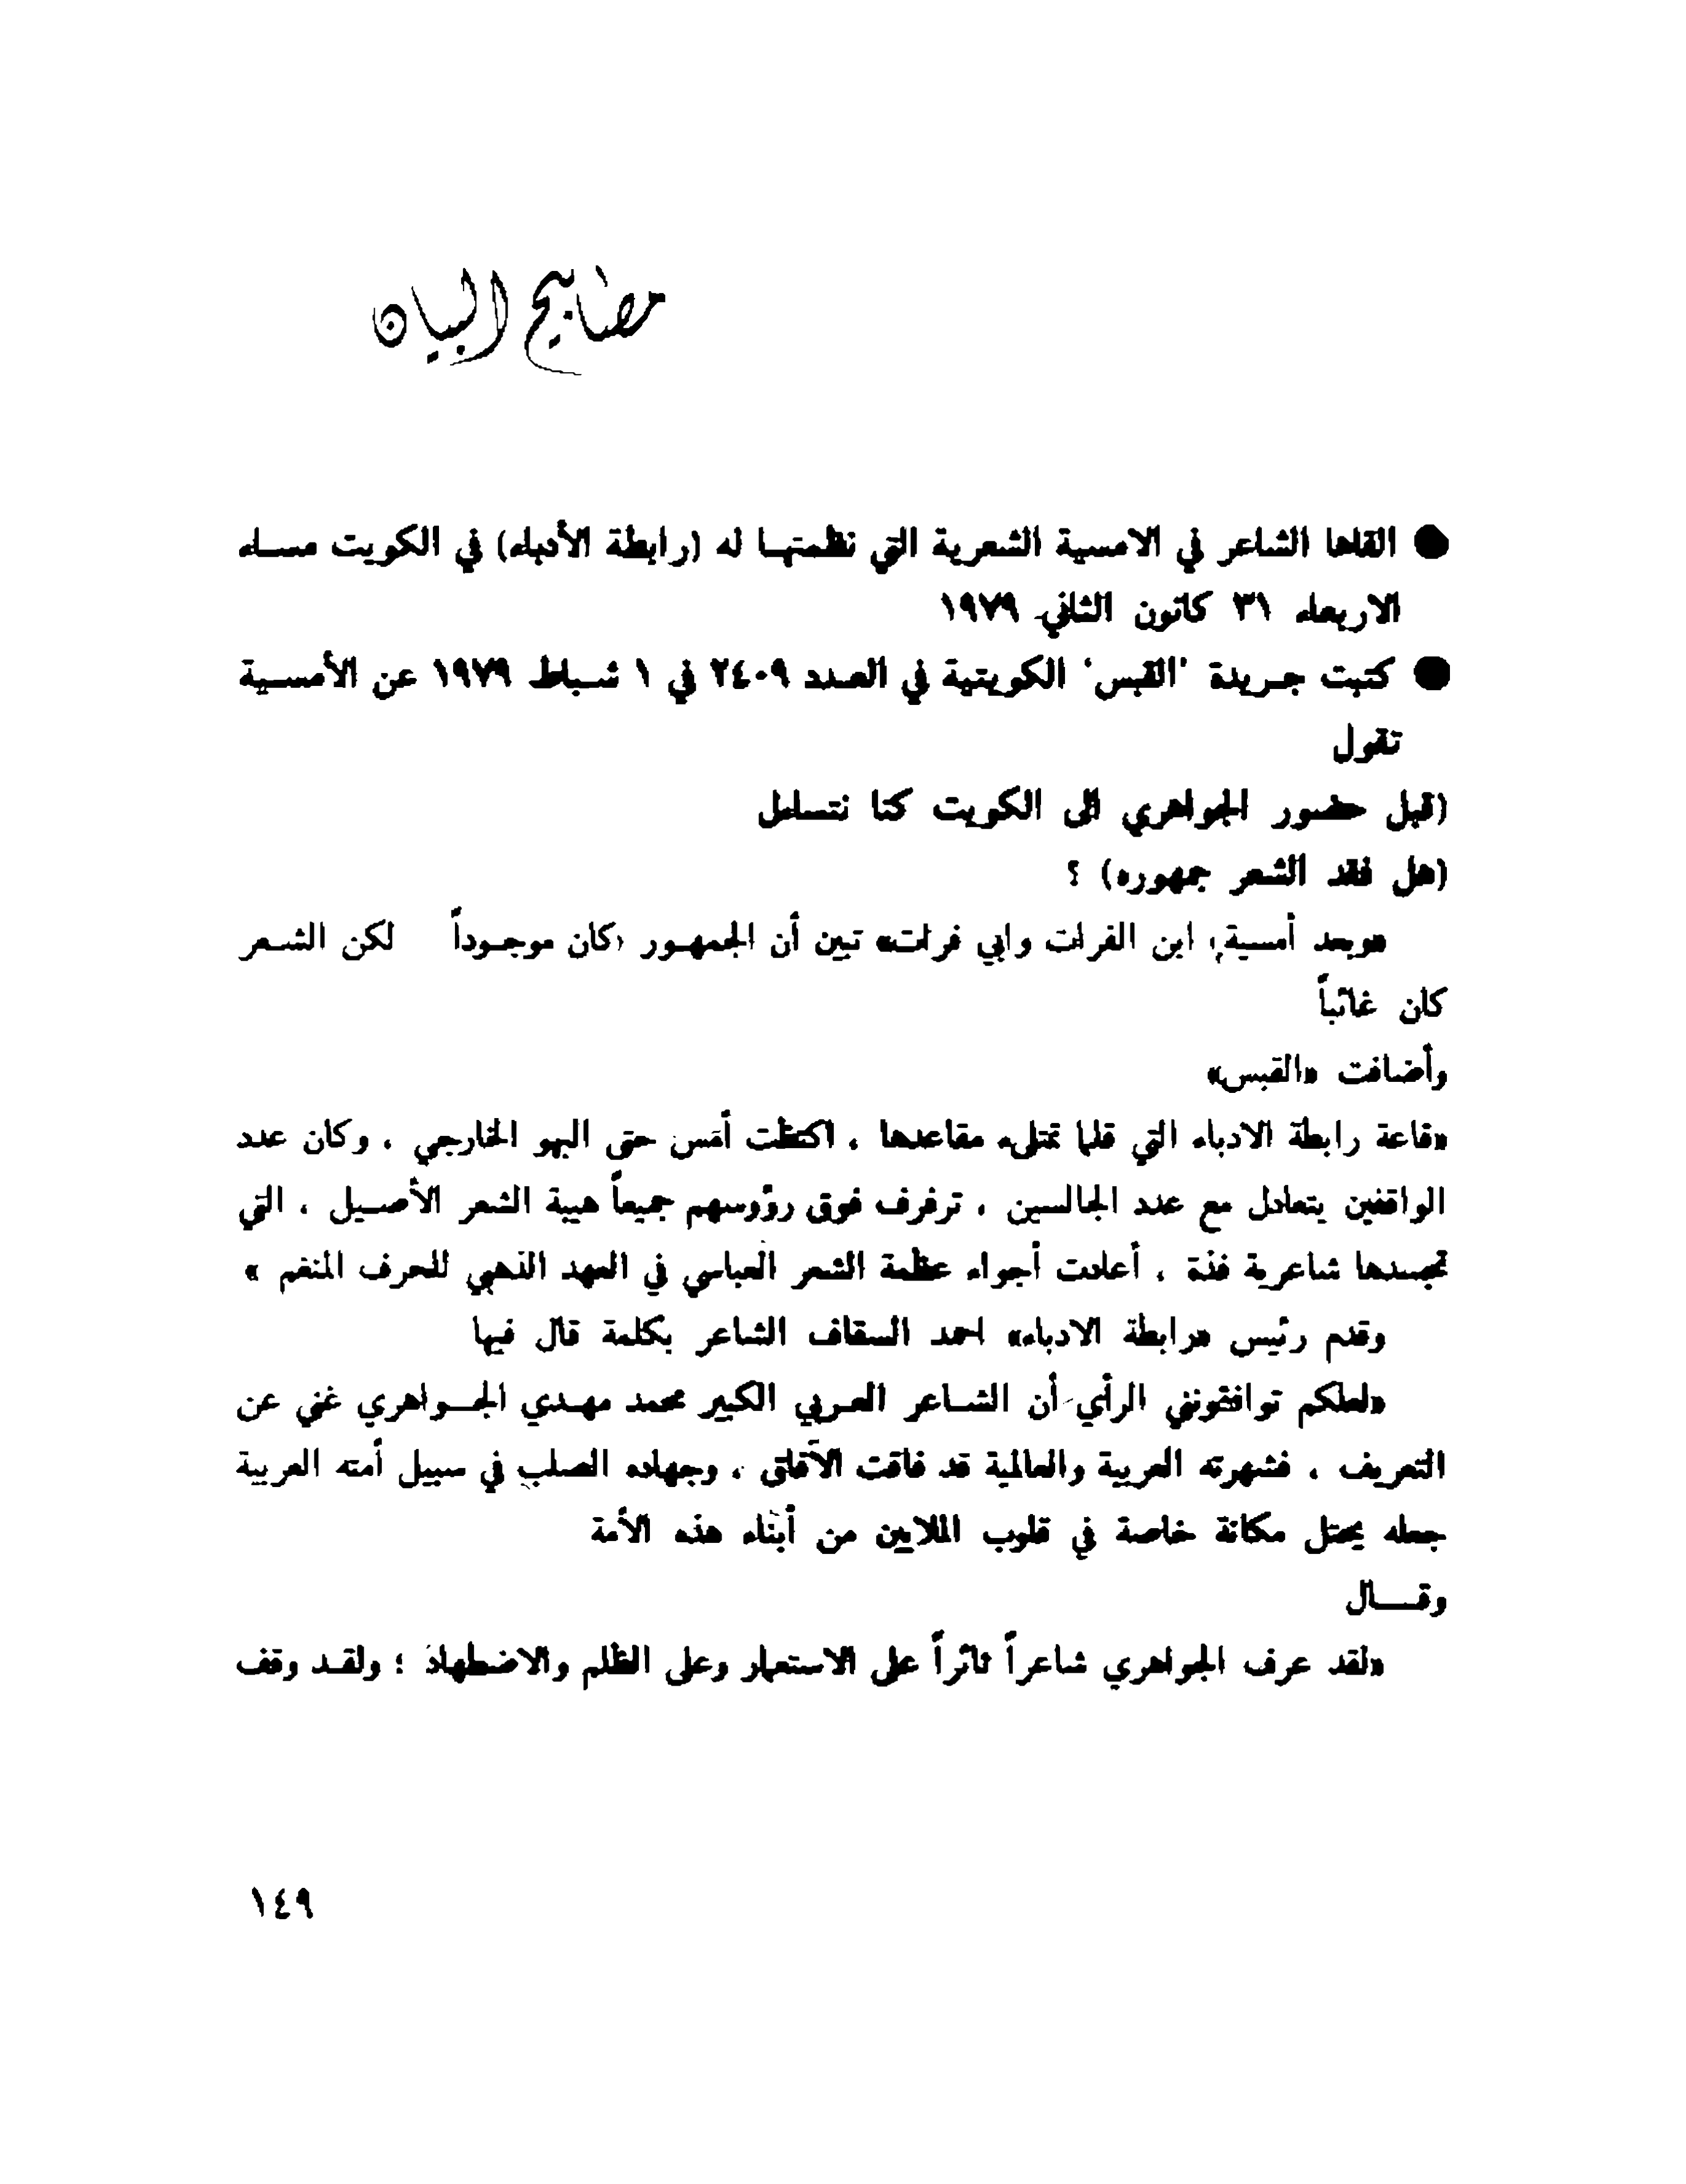 مصابيح البيان
● القاها الشاعر في الامسية الشعرية التي نظمتها له (رابطة الأدباء) في الكويت مساء
الاربعاء ٣١ كانون الثاني ١٩٧٩
● كتبت جريدة 'القبس' الكويتية في العدد ٢٤٠٩ في ١ شباط ١٩٧٩ عن الأمسية
تقول
(قبل حضور الجواهري الى الكويت كنا نتساءل
(هل فقد الشعر جمهوره) ؟
«وبعد أمسية، ابن الفرات وابي فرات» تبين أن الجمهور كان موجوداً لكن الشعر
كان غائباً
وأضافت «القبس»
«قاعة رابطة الادباء التي قلما تمتلىء مقاعدها ، اكتظت أمس حتى البهو الخارجي ، وكان عدد
الواقفين يتعادل مع عدد الجالسين ، ترفرف فوق رؤوسهم جميعاً هيبة الشعر الأصيل ، التي
تجسدها شاعرية فذة ، أعادت أجواء عظمة الشعر العباسي في العهد الذهبي للحرف المنغم »
وقدم رئيس «رابطة الادباء» احمد السقاف الشاعر بكلمة قال فيها
«لعلكم توافقونني الرأي أن الشاعر العربي الكبير محمد مهدي الجواهري غني عن
التعريف ، فشهرته العربية والعالمية قد فاقت الآفاق ، وجهاده الصلب في سبيل أمته العربية
جعله يحتل مكانة خاصة في قلوب الملايين من أبناء هذه الأمة
وقال
«لقد عرف الجواهري شاعراً ثائراً على الاستعمار وعلى الظلم والاضطهاد ؛ ولقد وقف
١٤٩